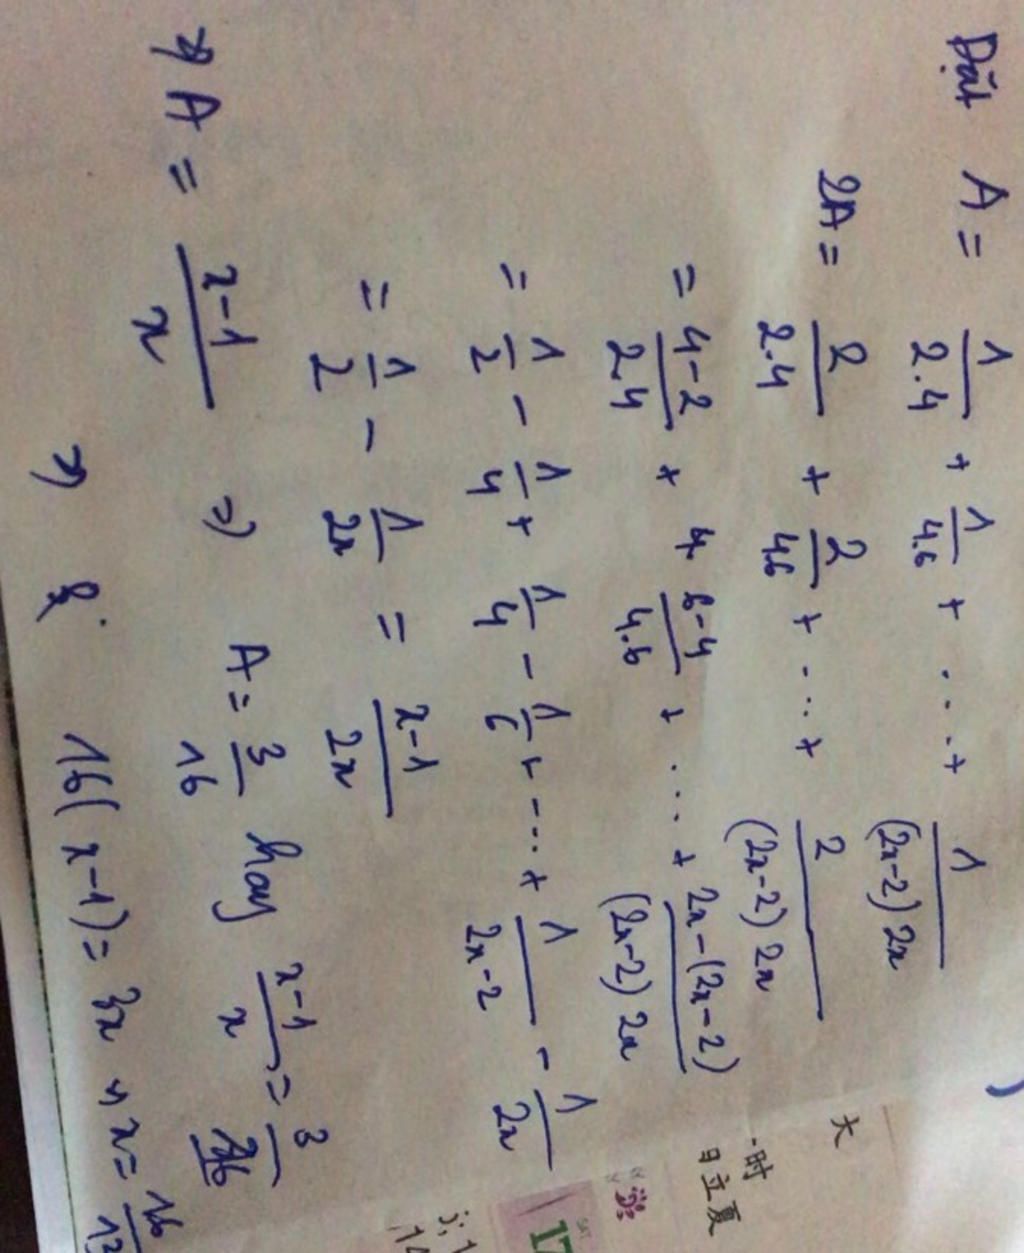 Đặt A = 1/2.4 + 1/4.6 + ... + 1/(2x-2)2x
2A = 2/2.4 + 2/4.6 + ... + 2/(2x-2)2x
= 4-2/2.4 + 4 6-4/4.6 + ... + 2x-(2x-2)/(2x-2)2x
= 1/2 - 1/4 + 1/4 - 1/6 + ... + 1/2x-2 - 1/2x
= 1/2 - 1/2x = x-1/2x
=> A = x-1/x => A = 3/16 hay x-1/x = 3/16
=> 16(x-1) = 3x => x = 16/13
大
时
日立夏
SAT
17